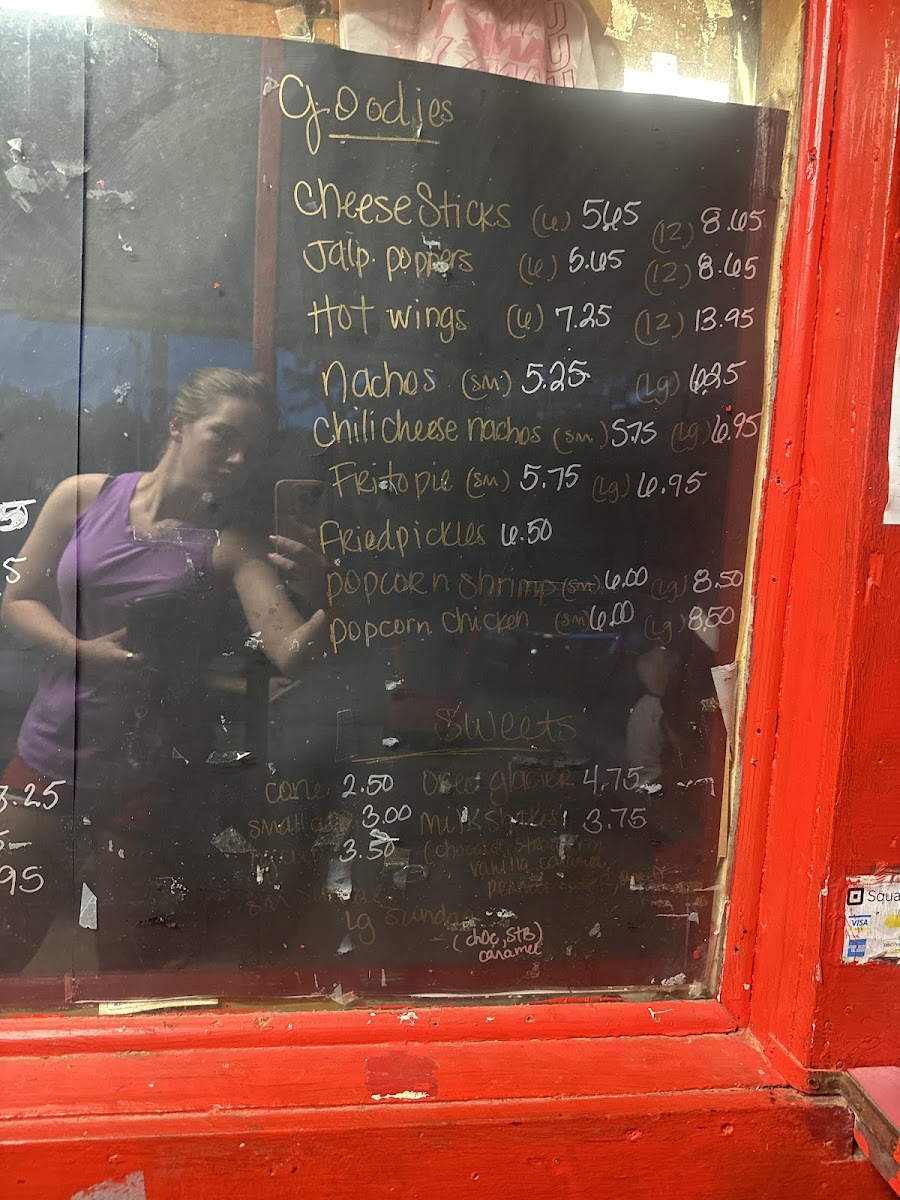 Goodies
Cheese Sticks (6) 5.65 (12) 8.65
Jalp. poppers (6) 5.65 (12) 8.65
Hot wings (6) 7.25 (12) 13.95
Nachos (sm) 5.25 (Lg) 6.25
Chili cheese nachos (sm) 5.75 (Lg) 6.95
Frito pie (sm) 5.75 (Lg) 6.95
Fried pickles 6.50
popcorn shrimp (sm) 6.00 (Lg) 8.50
popcorn chicken (sm) 6.00 (Lg) 8.50
Sweets
cone 2.50 Oreo glacier 4.75
small 3.00 Milkshakes 3.75
3.50 (chocolate,
vanilla, caramel,
sm
lg sundae
(choc, STB)
caramel
5
5
3.25
95
Squa
VISA